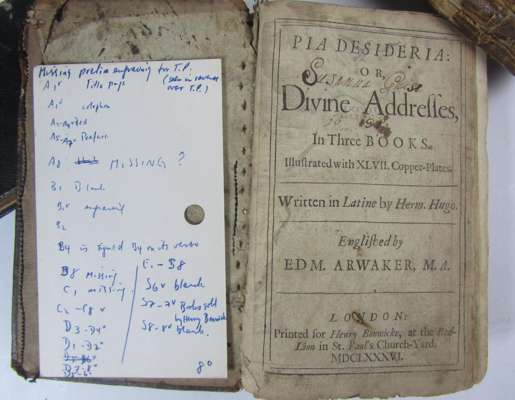 Missing prelim engraving for T.P.
A1r Title page
over T.P.)
A1v colophon
Preface
A8 MISSING ?
B1 Blank
B1v engraving
B2
B4 is signed B4 on its verso
B8 Missing
C1 missing
C2-C8 v
D3-D4v
D1-D2v
E1-B8
S6v blank
S7-7v Books sold
by Henry Bonwicke
S8-8v blank.
8o
PIA DESIDERIA:
OR,
Divine Addresses,
In Three BOOKS.
Illustrated with XLVII. Copper-Plates.
Written in Latine by Herm. Hugo.
Englished by
EDM. ARWAKER, M.A.
LONDON:
Printed for Henry Bonwicke, at the Red-
Lion in St. Paul's Church-Yard.
MDCLXXXVI.